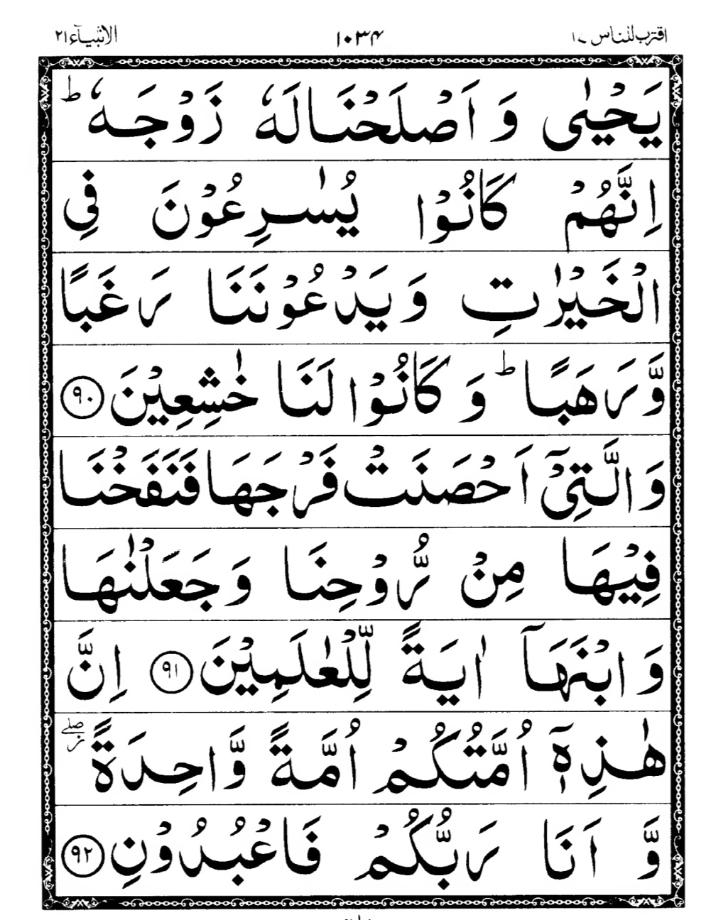 اقترب للناس ١٧ ١٠٣٤ الانبيآء ٢١
يَحْيٰى وَ اَصْلَحْنَا لَهٗ زَوْجَهٗ ؕ
اِنَّهُمْ كَانُوْا يُسٰرِعُوْنَ فِي
الْخَيْرٰتِ وَيَدْعُوْنَنَا رَغَبًا
وَّرَهَبًا ؕ وَ كَانُوْا لَنَا خٰشِعِيْنَ ﴿٩٠﴾
وَالَّتِيْۤ اَحْصَنَتْ فَرْجَهَا فَنَفَخْنَا
فِيْهَا مِنْ رُّوْحِنَا وَجَعَلْنٰهَا
وَابْنَهَاۤ اٰيَةً لِّلْعٰلَمِيْنَ ﴿٩١﴾ اِنَّ
هٰذِهٖۤ اُمَّتُكُمْ اُمَّةً وَّاحِدَةً ۖز
وَّ اَنَا رَبُّكُمْ فَاعْبُدُوْنِ ﴿٩٢﴾